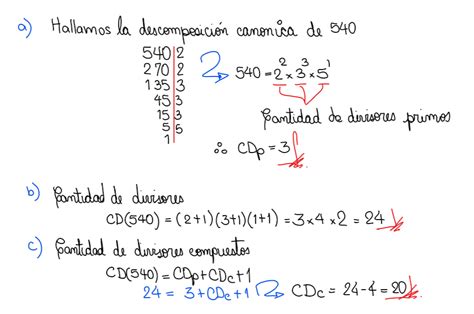 a) Hallamos la descomposición canonica de 540
540|2
270|2
135|3
45|3
15|3
5|5
1|
540 = 2² × 3³ × 5¹
Cantidad de divisores primos
∴ CDp = 3
b) Cantidad de divisores
CD(540) = (2+1)(3+1)(1+1) = 3 × 4 × 2 = 24
c) Cantidad de divisores compuestos
CD(540) = CDp + CDc + 1
24 = 3 + CDc + 1 CDc = 24 - 4 = 20